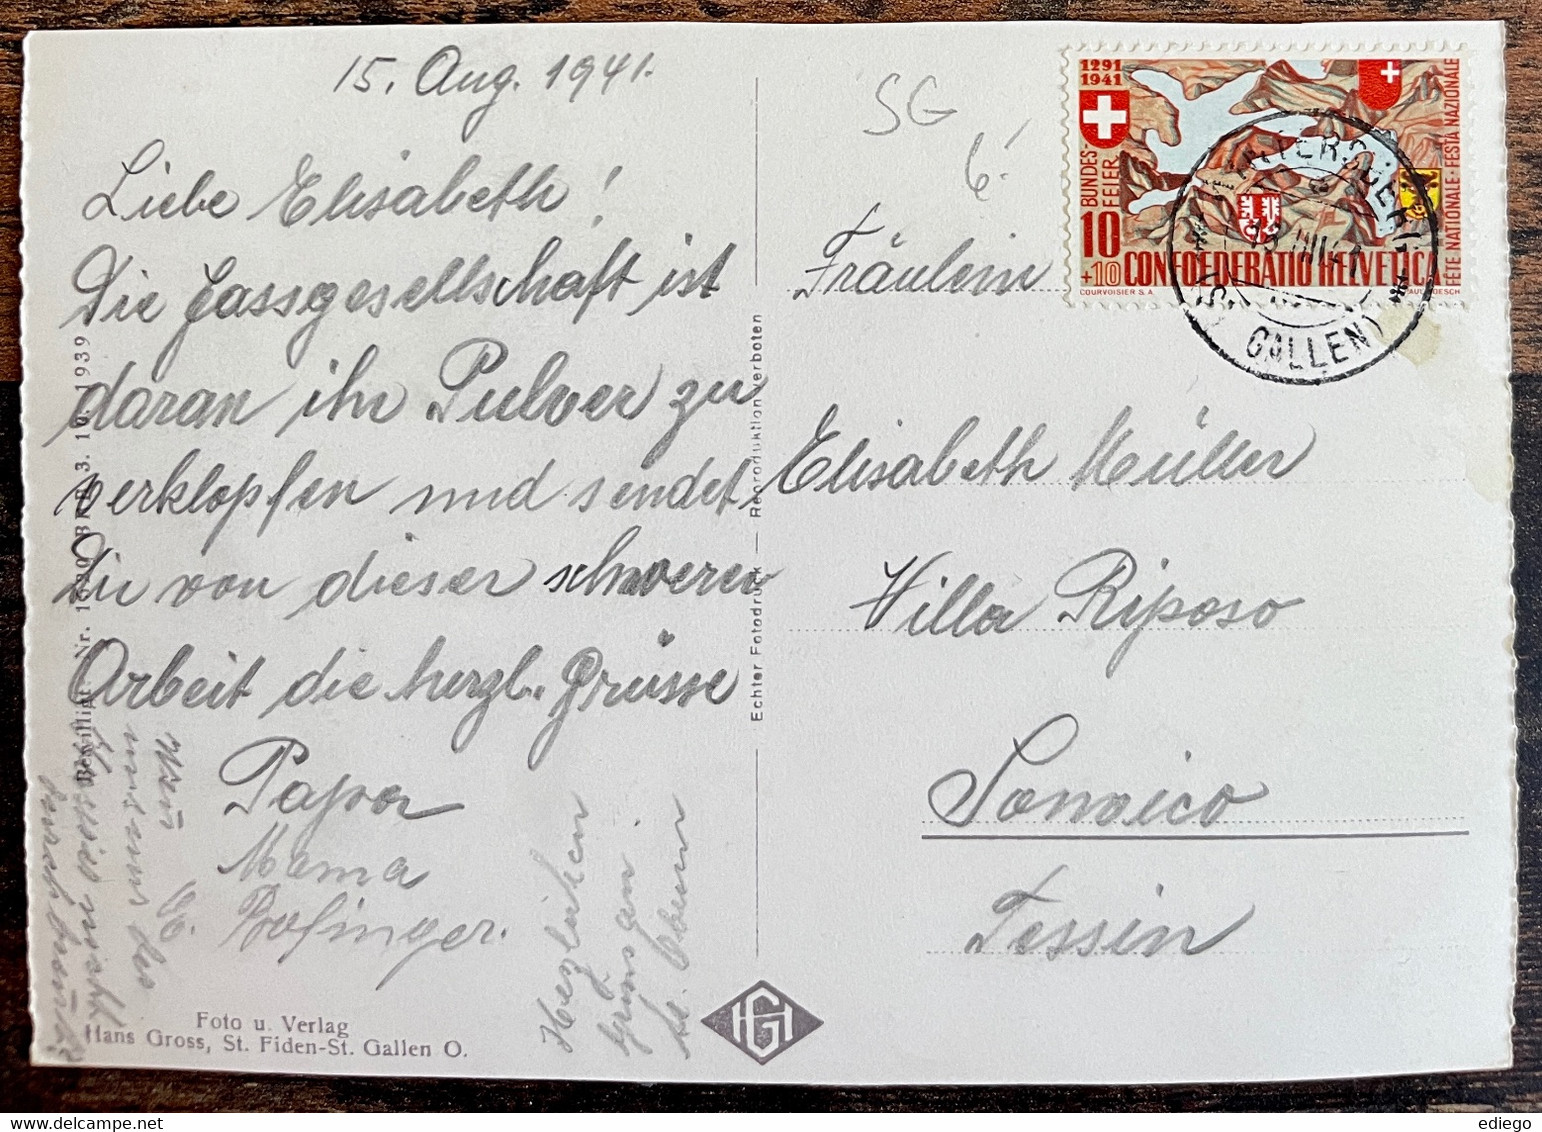 15. Aug. 1941.
Liebe Elisabeth!
Die Jassgesellschaft ist
daran ihr Pulver zu
verklopfen und sendet
Dir von dieser schweren
Arbeit die herzl. Grüsse
Papa
Mama
Herzlichen
Foto u. Verlag
Hans Gross, St. Fiden-St. Gallen O.
Bewilligt Nr. BRB 3. 10. 1939
Echter Fotodruck — Reproduktion verboten
HG
SG
6.-
1291
1941
BUNDES-
FEIER
10
+10
CONFOEDERATIO HELVETICA
COURVOISIER S.A.
FÊTE NATIONALE · FESTA NAZIONALE
GALLEN)
Fräulein
Elisabeth Müller
Villa Riposo
Sonvico
Tessin